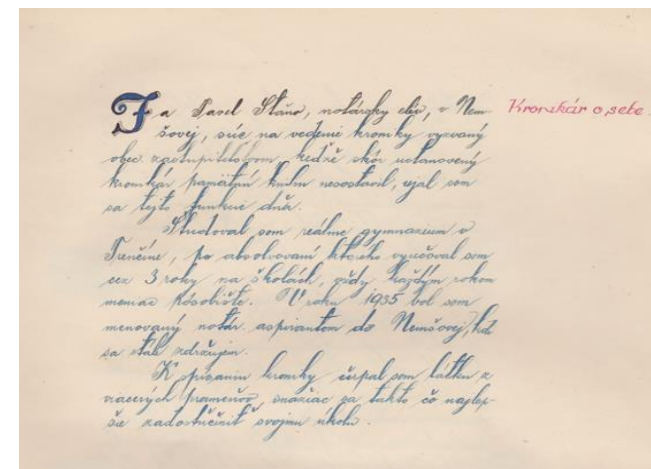 Ja Pavel Stano, notársky elév, v Nem-
šovej, súc na vedenie kroniky vyzvaný
obec. zastupitelstvom, kedže skôr ustanovený
kronikár pamätnú knihu nesostavil, ujal som
sa tejto funkcie dňa.
Študoval som reálne gymnazium v
Trenčíne, po absolvovaní ktorého vyučoval som
cez 3 roky na školách, vždy každým rokom
meniac pôsobište. V roku 1935 bol som
menovaný notár. aspirantom do Nemšovej, kde
sa stále zdržujem.
K spísaniu kroniky čerpal som látku z
viacerých prameňov, snažiac sa takto čo najlep-
šie zadostučiniť svojmu úkolu.
Kronikár o sebe.